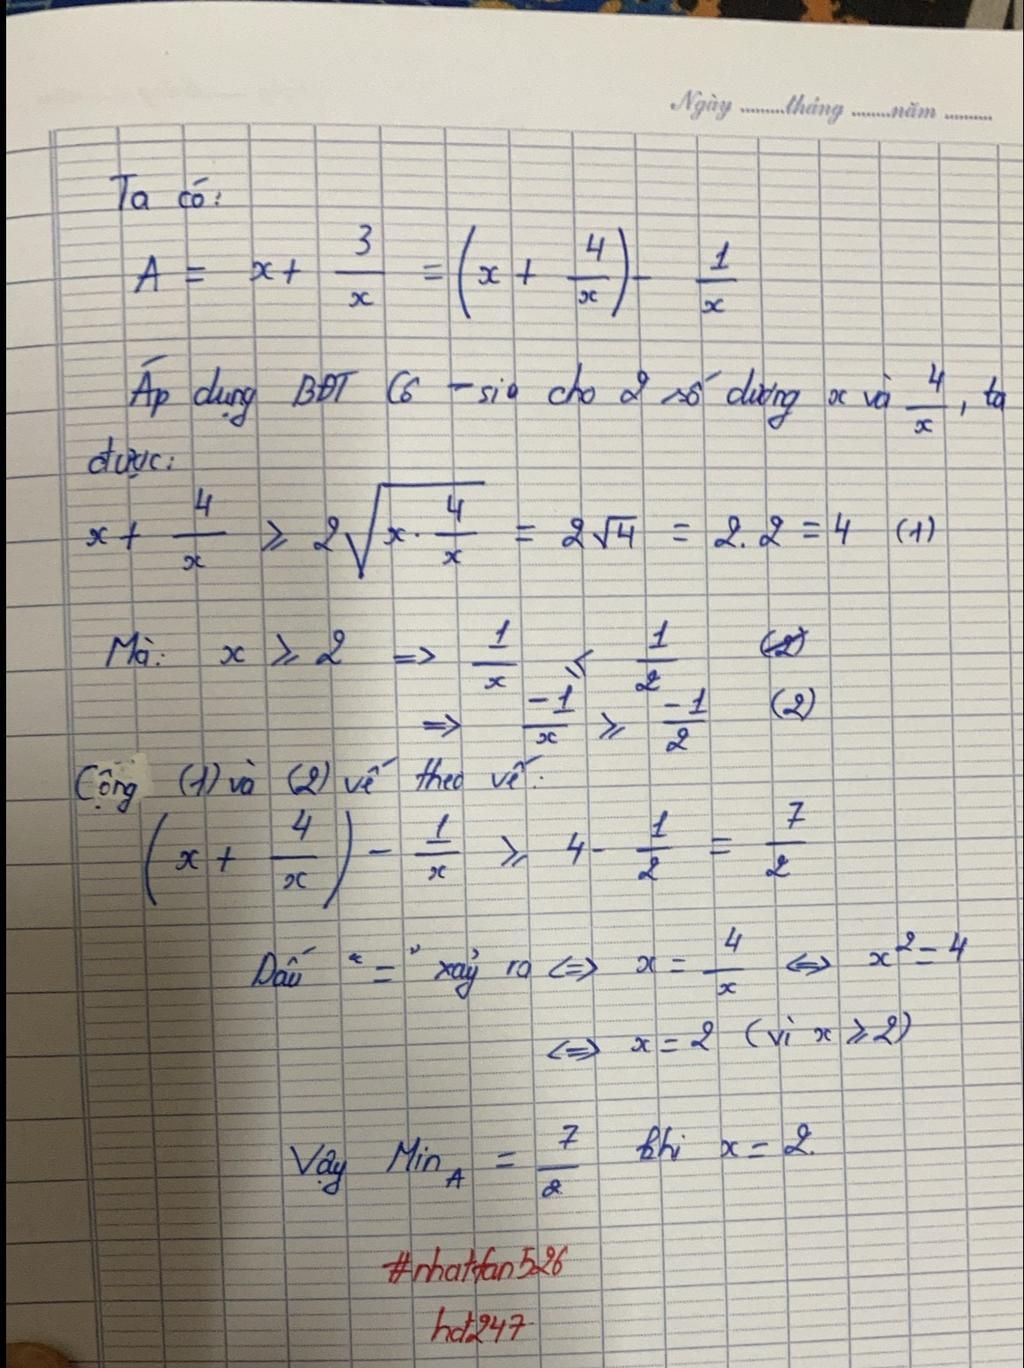 Ngày .........tháng ........năm ..........
Ta có:
A = x + 3/x = (x + 4/x) - 1/x
Áp dụng BĐT Cô - si cho 2 số dương x và 4/x, ta
được:
x + 4/x ≥ 2√(x . 4/x) = 2√4 = 2. 2 = 4 (1)
Mà: x ≥ 2 => 1/x ≤ 1/2 (2)
=> -1/x ≥ -1/2 (2)
Cộng (1) và (2) vế theo vế:
(x + 4/x) - 1/x ≥ 4 - 1/2 = 7/2
Dấu "=" xảy ra <=> x = 4/x <=> x² = 4
<=> x = 2 (vì x ≥ 2)
Vậy Min_A = 7/2 khi x = 2.
#nhatfan526
hd247